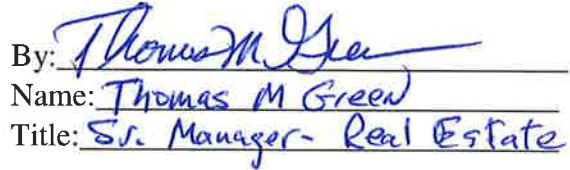 By: Thomas M Green
Name: Thomas M Green
Title: Sr. Manager- Real Estate